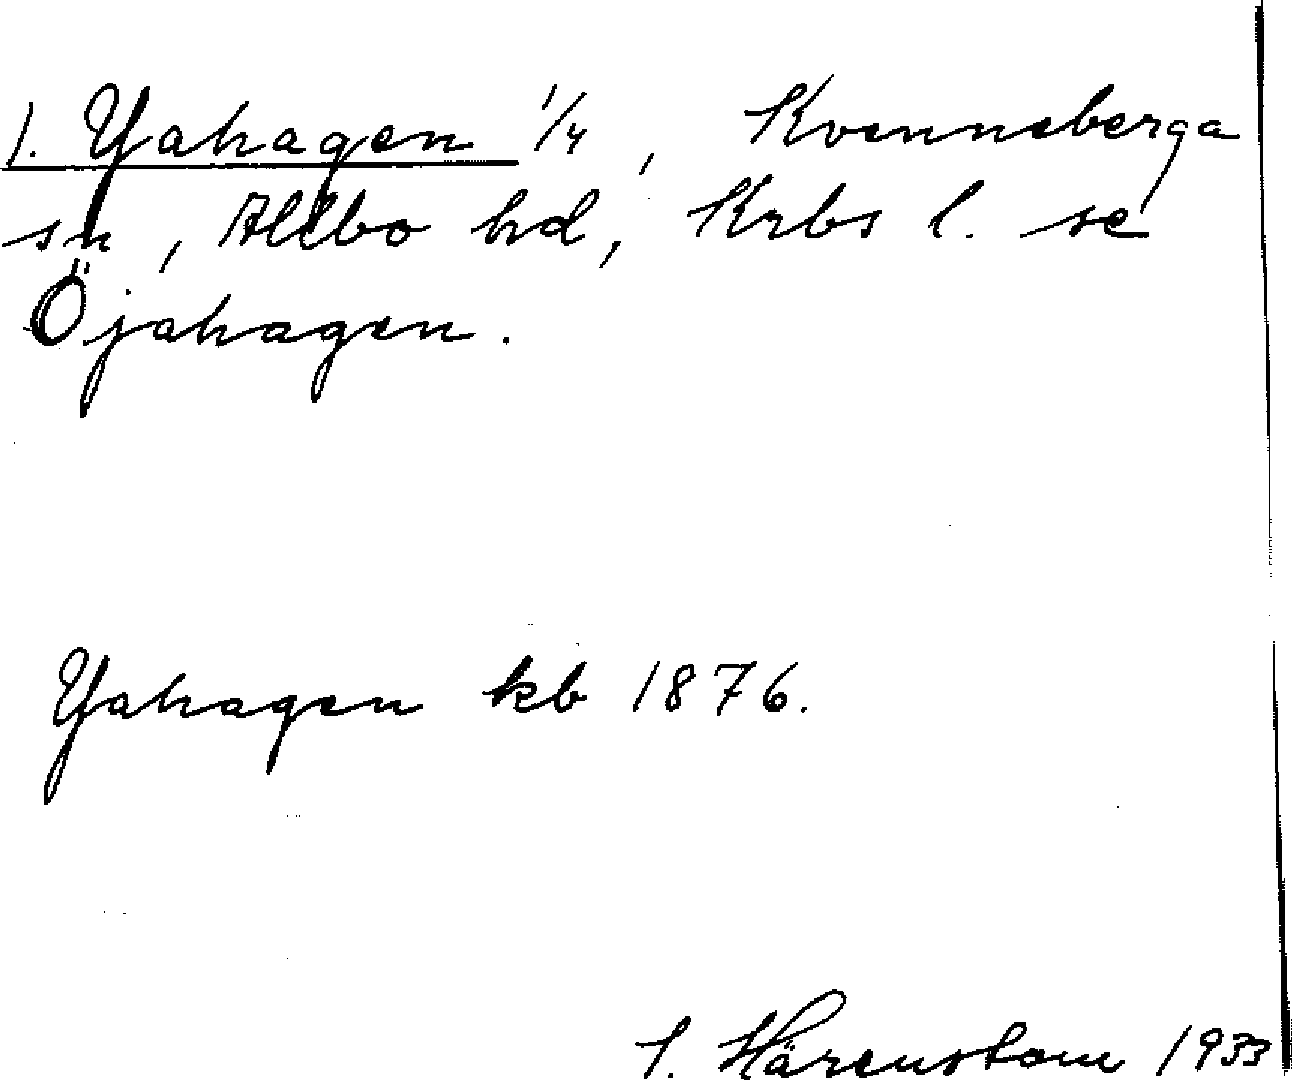 1. Yahagen 1/4, Kvenneberga
sn, Allbo hd, Krbs l. se
Öjahagen.
Yahagen kb 1876.
1933